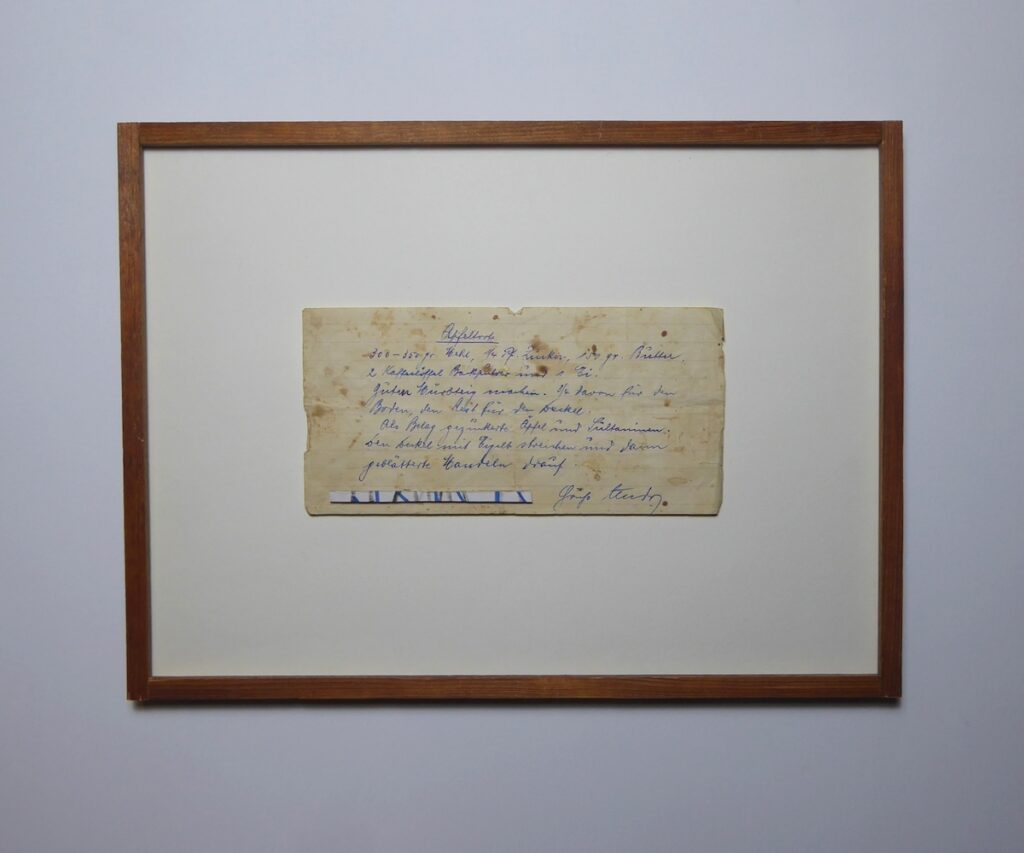 Apfeltorte
300-350 gr. Mehl, 1/4 Pf. Zucker, 150 gr. Butter,
2 Kaffeelöffel Backpulver und 1 Ei.
Guten Mürbteig machen. 3/4 davon für den
Boden, den Rest für den Deckel.
Als Belag gezuckerte Äpfel und Sultaninen.
Den Deckel mit Eigelb streichen und dann
geblätterte Mandeln drauf.